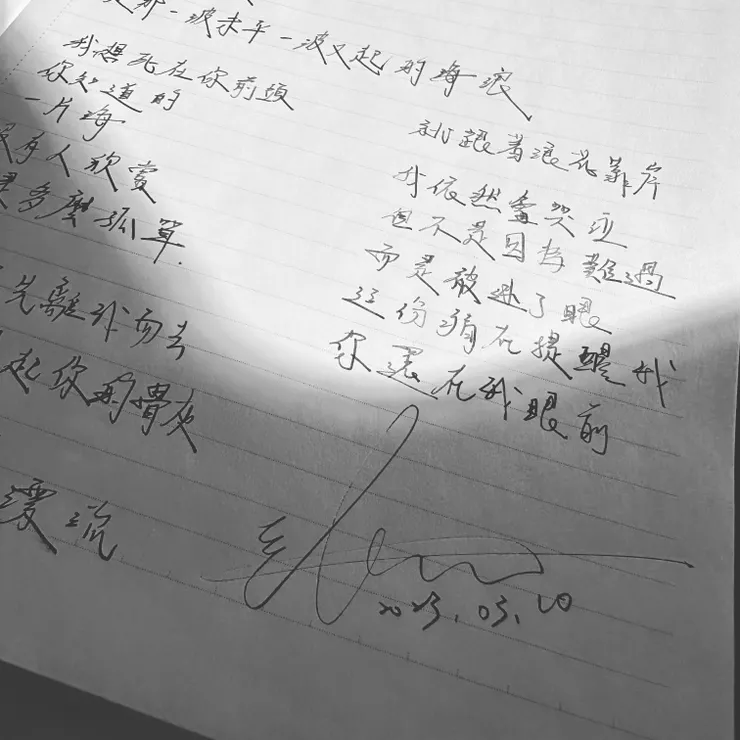 是那一波未平一波又起的海浪
我想死在你前頭
你知道的
一片海
很多人欣賞
多麼孤單
先離我而去
起你的骨灰
漫流
到跟著浪花靠岸
我依然會哭泣
但不是因為難過
而是被迷了眼
這傷痛在提醒我
你還在我眼前
2023.03.20